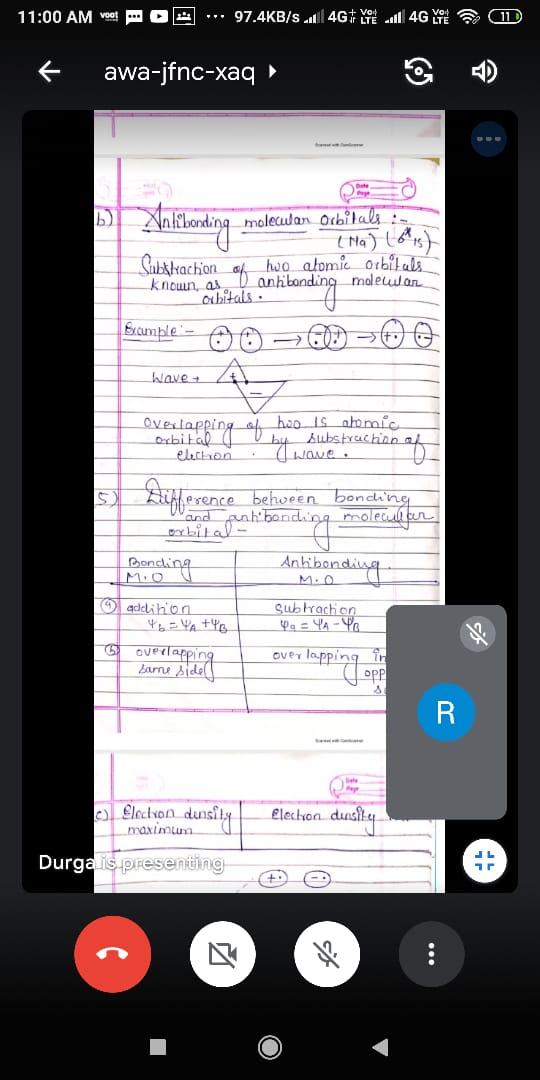 11:00 AM voot ... 97.4KB/s 4G+ Vo) LTE 4G Vo) LTE 11
awa-jfnc-xaq
Scanned with CamScanner
Date
Page
b) Antibonding molecular orbitals :-
Substraction of two atomic orbitals
known as antibonding molecular
orbitals.
Example :-
+ - → + - → + -
Wave → + -
overlapping of two 1S atomic
orbital by substraction of
electron wave.
5) Difference between bonding
and antibonding molecular
orbital -
Bonding Antibonding
M.O M.O
a) addition Subtraction
Ψb = ΨA + ΨB Ψa = ΨA - ΨB
b) overlapping overlapping in
same side opp
R
Scanned with CamScanner
Date
Page
c) Electron density Electron dusity
maximum
Durga is presenting
+ · - ·